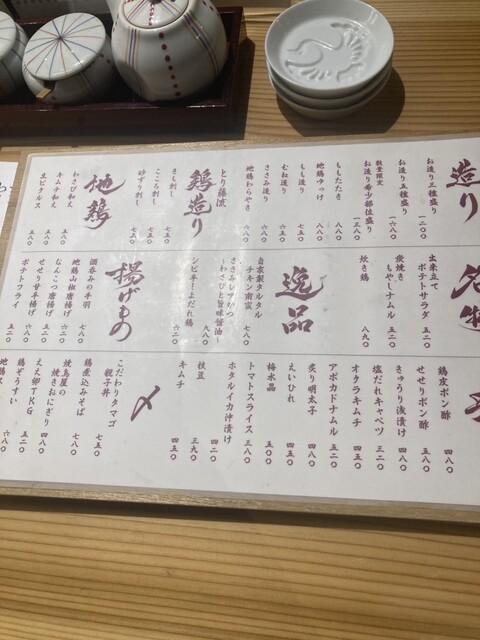 造り
お造り三種盛り 一二〇〇
お造り五種盛り 一六八〇
数量限定
お造り希少部位盛り 一三八〇
ももたたき 八八〇
地鶏ゆっけ 六八〇
もも造り 七五〇
むね造り 六五〇
ささみ造り
地鶏わらやき
とり藤流
鶏造り
きも刺し
こころ刺し 七五〇
砂ずり刺し 七五〇
地鶏
わさび和え 五八〇
キムチ和え 五八〇
生ピクルス 五八〇
名物
出来立て
ポテトサラダ 五二〇
炭焼き
もやしナムル 五二〇
炊き鶏 八九〇
逸品
自家製タルタル
チキン南蛮 七八〇
ささみレアかつ
〜わさびと旨味醤油〜 八八〇
シビ辛!よだれ鶏 六二〇
揚げもの
酒呑みの手羽 七八〇
地鶏山椒唐揚げ
なんこつ唐揚げ 六二〇
せせり甘辛揚げ
ポテトフライ 五二〇
鶏皮ポン酢 四八〇
せせりポン酢 五八〇
きゅうり浅漬け 四八〇
塩だれキャベツ 三二〇
オクラキムチ 四五〇
アボカドナムル 五二〇
炙り明太子 四五〇
えいひれ 四五〇
梅水晶 五二〇
トマトスライス 三八〇
ホタルイカ沖漬け 四二〇
枝豆 三九〇
キムチ 四五〇
〆
こだわりタマゴ
親子丼 七五〇
鶏煮込みそば 七八〇
焼鳥屋の
焼きおにぎり 四八〇
ええ卵TKG 五二〇
鶏ぞうすい 六八〇